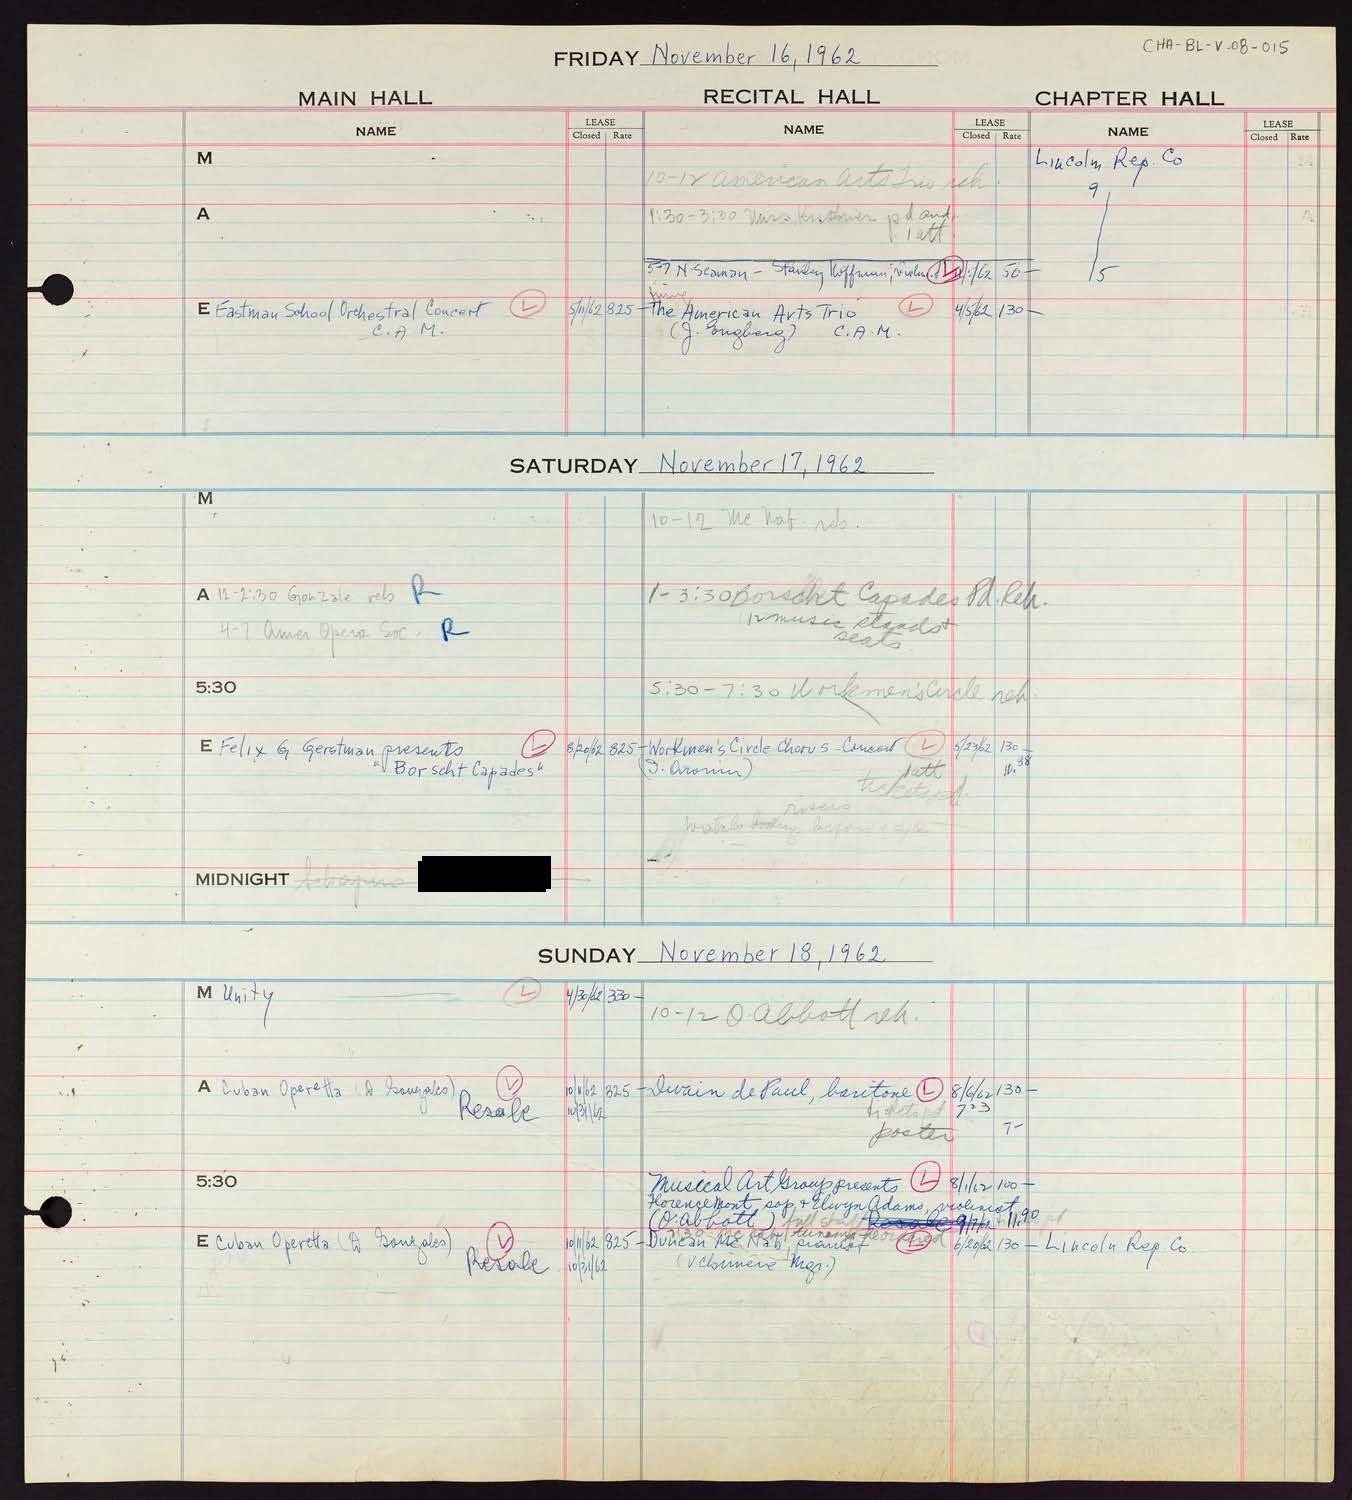 CHA-BL-V.08-015
FRIDAY November 16, 1962
MAIN HALL RECITAL HALL CHAPTER HALL
NAME LEASE Closed Rate NAME LEASE Closed Rate NAME LEASE Closed Rate
M Lincoln Rep. Co
10-12 American Arts Trio reh.
9
A 1:30-3:30 pd and
1 att
5-7 N. Seaman - Stanley Hoffman, violin L 62 50- 5
E Eastman School Orchestral Concert L 5/11/62 825- The American Arts Trio L 4/5/62 130-
C.A.M. (J. Engberg) C.A.M.
SATURDAY November 17, 1962
M
10-12 Mc Nab reh.
A 12-2:30 Gonzale reh R 1-3:30 Borscht Capades Pd. Reh.
12 music stands +
4-7 Amer Opera Soc. R seats
5:30 5:30-7:30 Workmen's Circle reh.
E Felix G Gerstman presents L 8/20/62 825- Workmen's Circle Chorus - Concert L 5/23/62 130-
"Borscht Capades" (I. Aronin) 1 att
tickets pd.
risers
MIDNIGHT Schapiro
SUNDAY November 18, 1962
M Unity L 4/30/62 330-
10-12 O. Abbott reh.
A Cuban Operetta (D Gonzales) L 10/11/62 825- Dwain de Paul, baritone L 8/6/62 130-
Resale 10/31/62 tickets pd 7 23
poster 7-
5:30 Musical Art Group presents L 8/1/62 100-
Florence Mont, sop, + Elwyn Adams, violinist
(O. Abbott) Resale 9/7/62 11.90
E Cuban Operetta (D Gonzales) L 10/11/62 825- Duncan Mc Nab, pianist L 6/20/62 130- Lincoln Rep. Co
Resale 10/31/62 Mgr.)